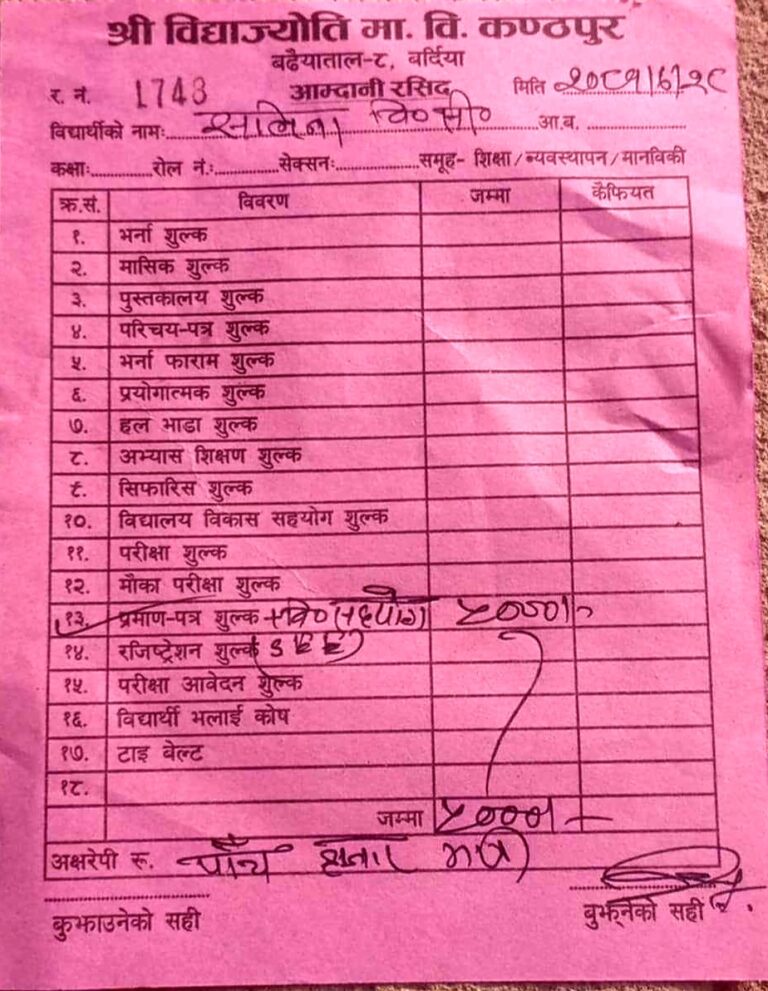 श्री विद्याज्योति मा. वि. कण्ठपुर
बढैयाताल-८, बर्दिया
र. नं. 1743 आम्दानी रसिद मिति २०८१।६।२८
विद्यार्थीको नामः समिना वि० सी० आ.ब.
कक्षाः रोल नं.: सेक्सनः समूह- शिक्षा/ब्यवस्थापन/मानविकी
क्र.सं. विवरण जम्मा कैफियत
१. भर्ना शुल्क
२. मासिक शुल्क
३. पुस्तकालय शुल्क
४. परिचय-पत्र शुल्क
५. भर्ना फाराम शुल्क
६. प्रयोगात्मक शुल्क
७. हल भाडा शुल्क
८. अभ्यास शिक्षण शुल्क
९. सिफारिस शुल्क
१०. विद्यालय विकास सहयोग शुल्क
११. परीक्षा शुल्क
१२. मौका परीक्षा शुल्क
१३. प्रमाण-पत्र शुल्क +वि० सहयोग ५०००।-
१४. रजिष्ट्रेशन शुल्क (SEE)
१५. परीक्षा आवेदन शुल्क
१६. विद्यार्थी भलाई कोष
१७. टाइ वेल्ट
१८.
जम्मा ५०००।-
अक्षरेपी रू. पाँच हजार मात्र
बुझाउनेको सही बुझ्नेको सही